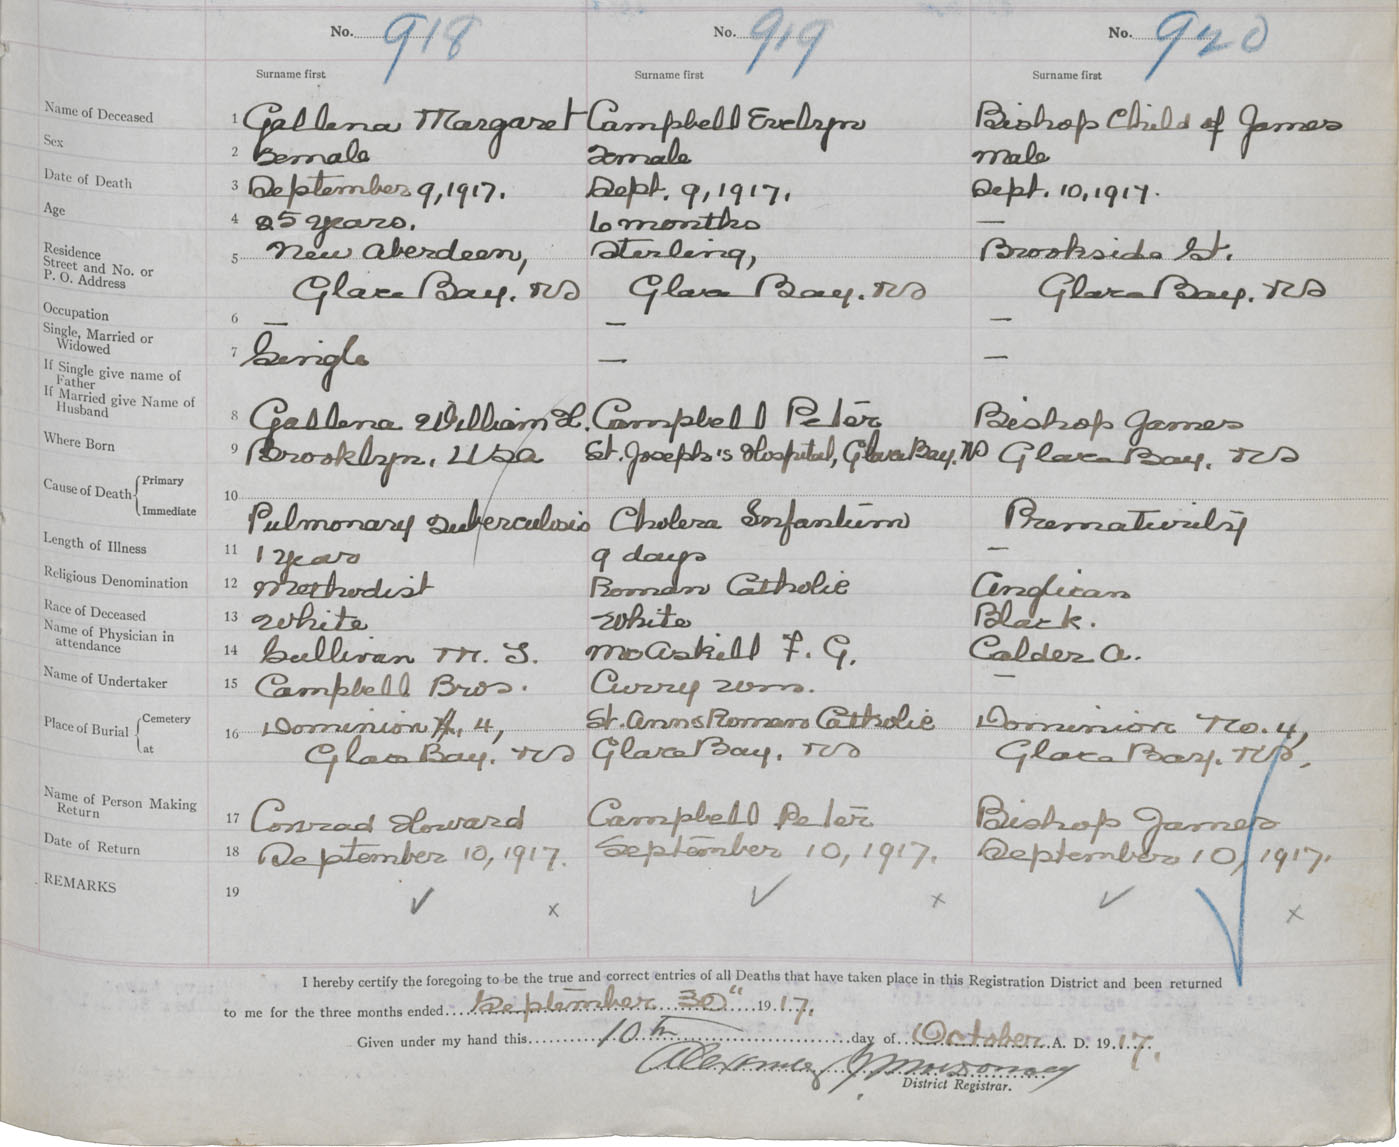 No. 918 No. 919 No. 920
Surname first Surname first Surname first
Name of Deceased 1 Gallena Margaret Campbell Evelyn Bishop Child of James
Sex 2 Female Female Male
Date of Death 3 September 9, 1917. Sept. 9, 1917. Sept. 10, 1917.
Age 4 25 years. 6 months —
Residence
Street and No. or
P. O. Address
5 New Aberdeen, Sterling, Brookside St.
Glace Bay. NS Glace Bay. NS Glace Bay. NS
Occupation 6 — — —
Single, Married or
Widowed
7 Single — —
If Single give name of
Father
If Married give Name of
Husband
8 Gallena William H. Campbell Peter Bishop James
Where Born 9 Brooklyn, USA St. Joseph's Hospital, Glace Bay. NS Glace Bay. NS
Cause of Death Primary
Immediate
10 Pulmonary Tuberculosis Cholera Infantum Prematurity
Length of Illness 11 1 year 9 days —
Religious Denomination 12 Methodist Roman Catholic Anglican
Race of Deceased 13 White White Black.
Name of Physician in
attendance
14 Sullivan M. T. McAskill F. G. Calder A.
Name of Undertaker 15 Campbell Bros. Curry Wm. —
Place of Burial Cemetery
at
16 Dominion No. 4, St. Anns Roman Catholic Dominion No. 4,
Glace Bay. NS Glace Bay, NS Glace Bay. NS.
Name of Person Making
Return
17 Conrad Howard Campbell Peter Bishop James
Date of Return 18 September 10, 1917. September 10, 1917. September 10, 1917.
REMARKS 19 ✓ x ✓ x ✓ x
I hereby certify the foregoing to be the true and correct entries of all Deaths that have taken place in this Registration District and been returned
to me for the three months ended September 30" 1917.
Given under my hand this 10th day of October A. D. 1917.
District Registrar.